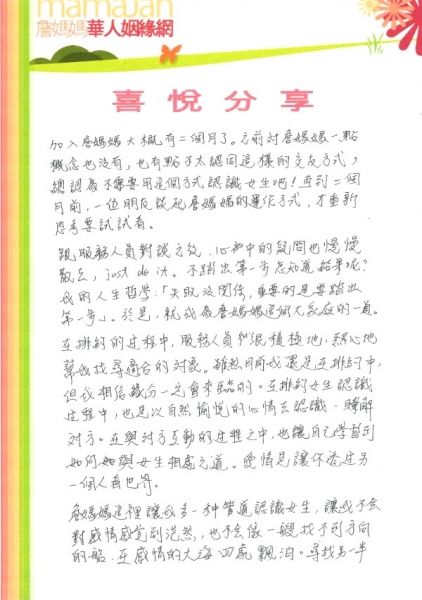 mamaJan
詹媽媽華人姻緣網
喜悅分享
加入詹媽媽大概有二個月了。之前對詹媽媽一點
概念也沒有，也有點不太認同這樣的交友方式，
總認為不需要用這個方式認識女生吧！直到二個
月前，一位朋友談起詹媽媽的運作方式，才重新
思考要試試看。
跟服務人員對談之後，心中的疑問也慢慢
散去，just do it。不踏出第一步怎知道結果呢？
我的人生哲學：「失敗沒關係，重要的是要踏出
第一步」。於是，就成為詹媽媽這個大家庭的一員。
在排約的過程中，服務人員們很積極地、熱心地
幫我找尋適合的對象。雖然目前我還是在排約中，
但我相信緣分一定會來臨的。在排約女生認識
過程中，也是以自然愉悅的心情去認識、瞭解
對方。在與對方互動的過程之中，也讓自己學習到
如何與女生相處之道。愛情是讓你透過另
一個人看世界。
詹媽媽這裡讓我多一種管道認識女生，讓我不會
對感情感覺到茫然，也不會像一艘找不到方向
的船，在感情的大海四處飄泊。尋找另一半